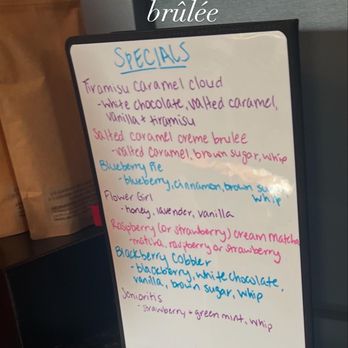 brûlée
SPECIALS
Tiramisu caramel cloud
- white chocolate, salted caramel,
vanilla + tiramisu
Salted caramel creme brulee
- salted caramel, brown sugar, whip
Blueberry Pie
- blueberry, cinnamon, brown sugar
whip
Flower Girl
- honey, lavender, vanilla
Raspberry (or strawberry) cream matcha
- matcha, raspberry or strawberry
Blackberry Cobbler
- blackberry, white chocolate,
vanilla, brown sugar, whip
Senioritis
- strawberry + green mint, whip